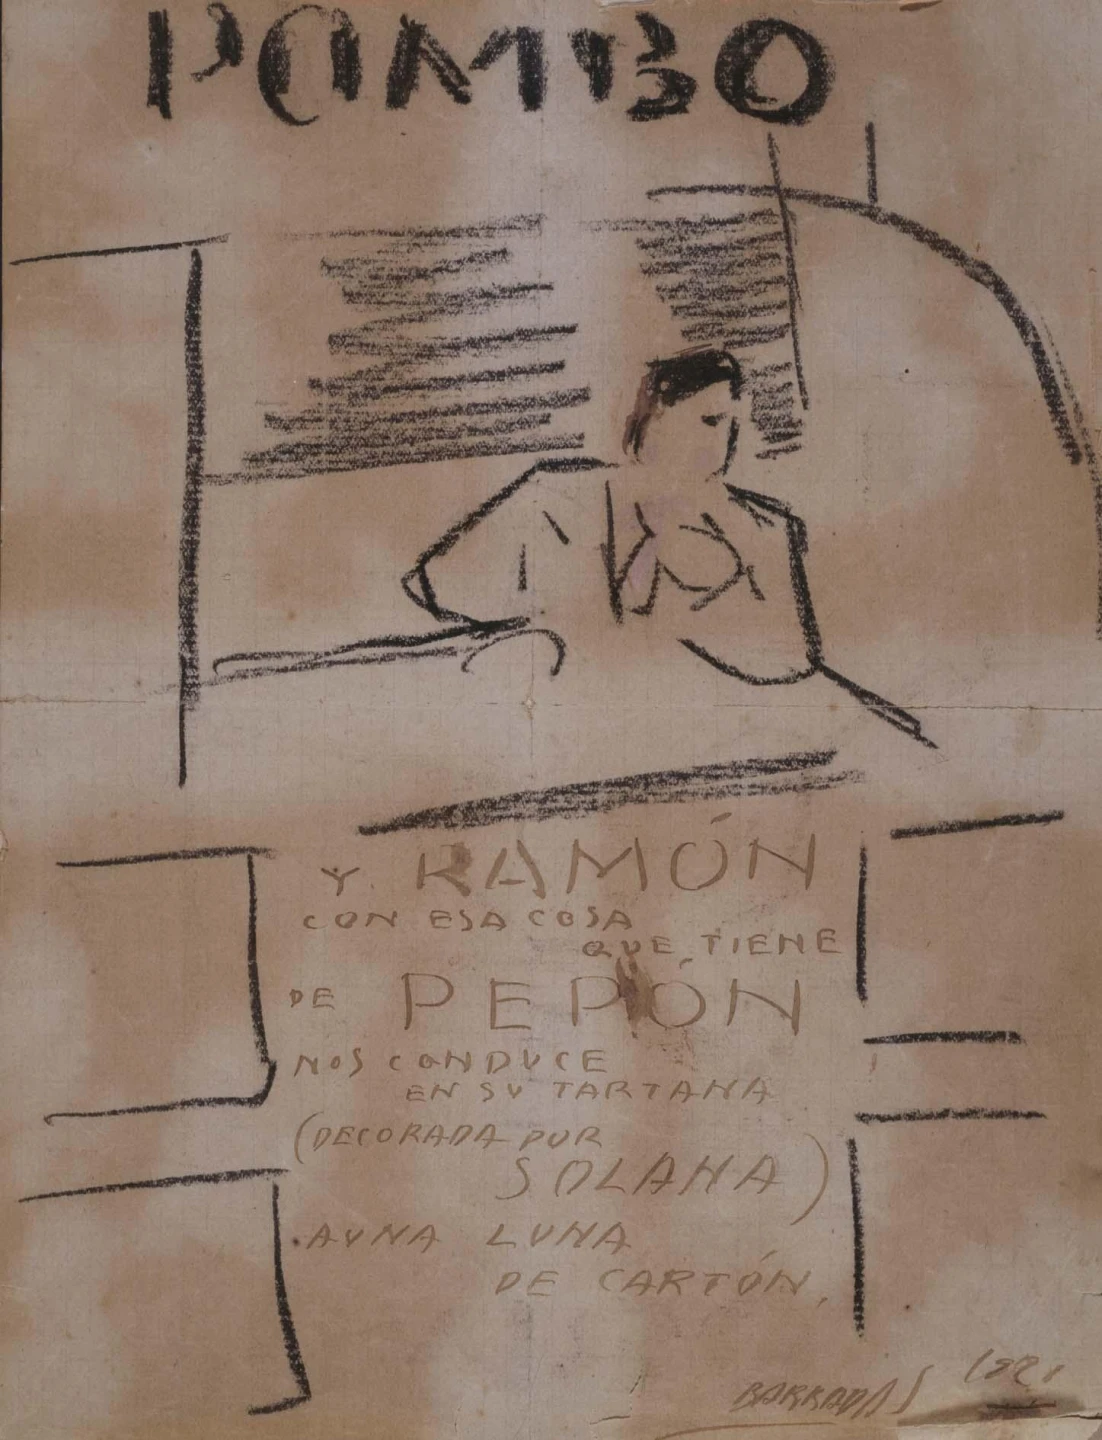 POMBO
Y RAMÓN
CON ESA COSA
QUE TIENE
DE PEPÓN
NOS CONDUCE
EN SU TARTANA
(DECORADA POR
SOLANA)
A UNA LUNA
DE CARTÓN.
BARRADAS 1921